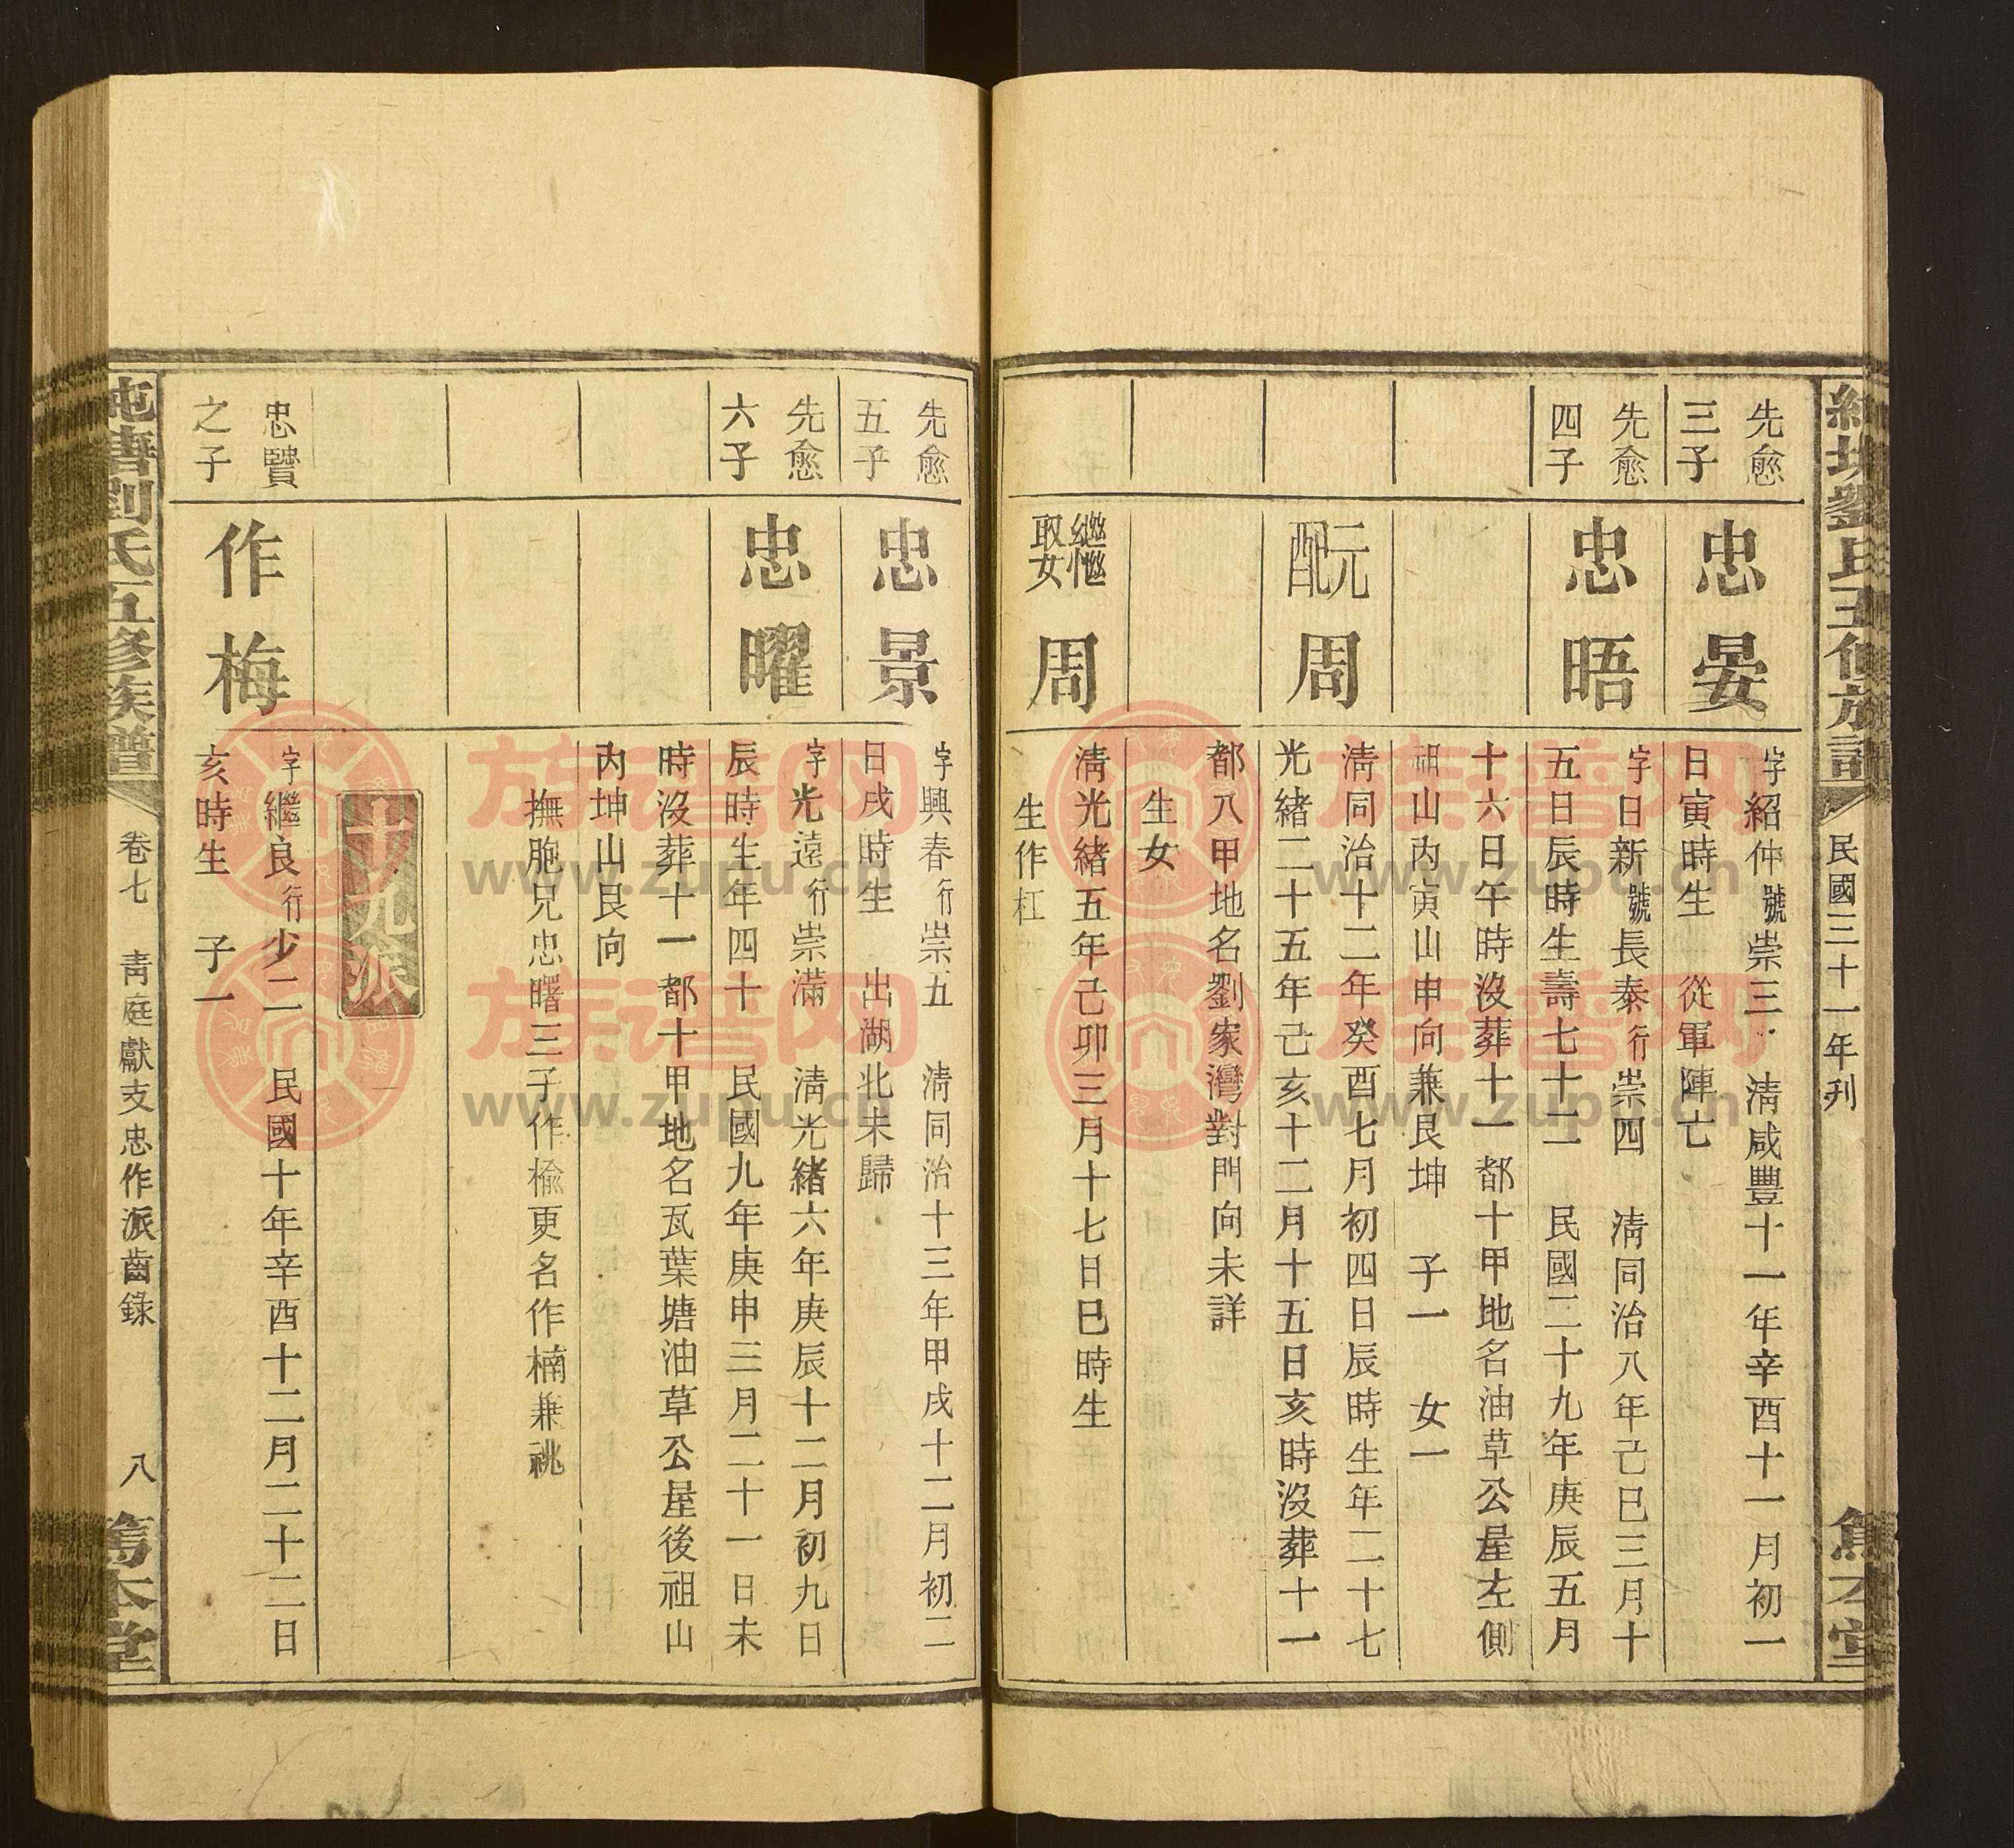 民國三十一年刋
先愈
三子
忠晏
字紹仲號崇三 淸咸豐十一年辛酉十一月初一
日寅時生 從軍陣亡
先愈
四子
忠晤
字日新號長泰行崇四 淸同治八年己巳三月十
五日辰時生壽七十二 民國二十九年庚辰五月
十六日午時沒葬十一都十甲地名油草公屋左側
祖山內寅山申向兼艮坤 子一 女一
元配
周
淸同治十二年癸酉七月初四日辰時生年二十七
光緖二十五年己亥十二月十五日亥時沒葬十一
都八甲地名劉家灣對門向未詳
生女
繼娶
周
淸光緖五年己卯三月十七日巳時生
生作杠
先愈
五子
忠景
字興春行崇五 淸同治十三年甲戌十二月初二
日戌時生 出湖北未歸
先愈
六子
忠曜
字光遠行崇滿 淸光緖六年庚辰十二月初九日
辰時生年四十 民國九年庚申三月二十一日未
時沒葬十一都十甲地名瓦葉塘油草公屋後祖山
內坤山艮向
撫胞兄忠曙三子作楡更名作楠兼祧
十九派
忠贊
之子
作梅
字繼良行少二 民國十年辛酉十二月二十二日
亥時生 子一
劉氏五修族譜
卷七 靑庭獻支忠作派齒錄
八
本堂
族谱网
www.zupu.cn
族谱网
www.zupu.cn
族谱网
www.zupu.cn
族谱网
www.zupu.cn